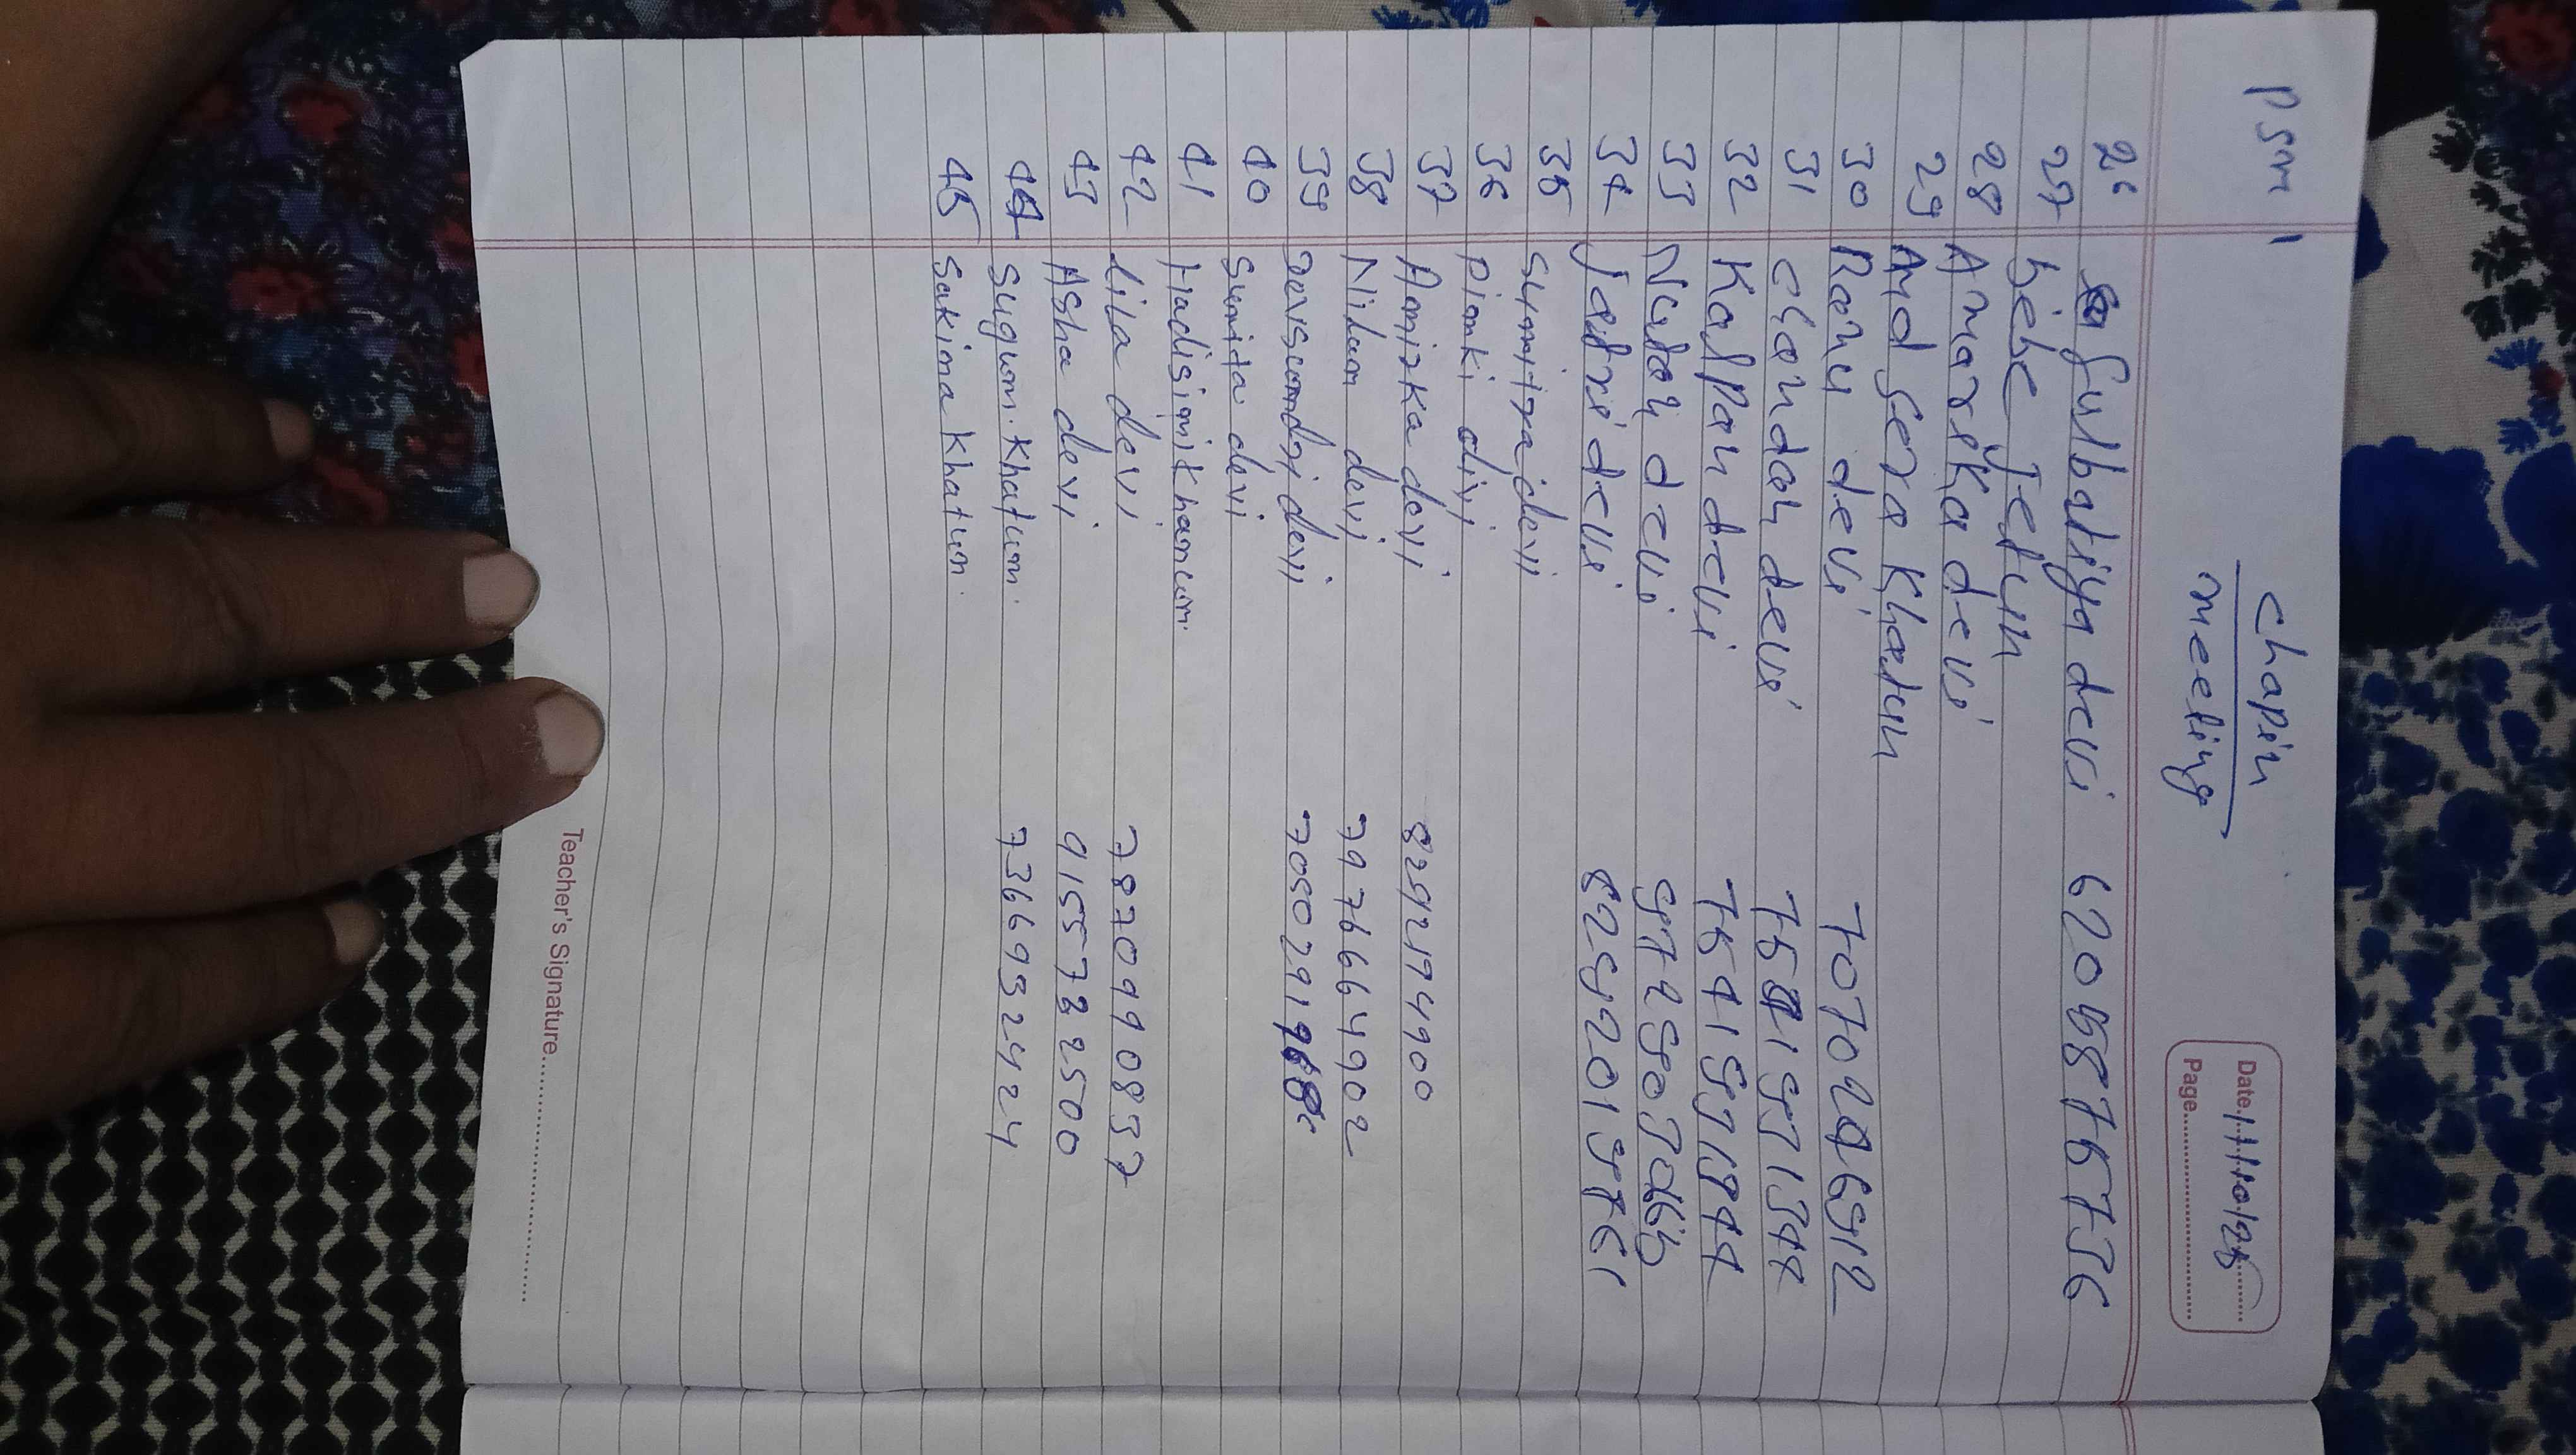 PSM 1
chapin
meeting
Date 11/10/25
Page
26 fulbatiya devi 6205876736
27 bebe Jetun
28 Amarika devi
29 And sera Khatun
30 Ranu devi
31 chandan devi 7541971944
32 Kalpan devi 7541971944
33 Nutan devi
34 Jatri devi
35 Sumitra devi
36 Pinki divi
37 Amirka devi 8292194900
38 Nilam devi 7976664902
39 devi
40 Sunita devi
41 Hadisimi Khantun
42 Lila devi 7870990857
43 Asha devi 9155732500
44 Sugum Khatum 7366932424
45 Sakina Khatun
Teacher's Signature